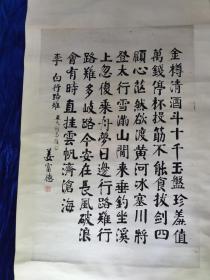 金樽清酒斗十千玉盤珍羞值
萬錢停杯投筯不能食拔劍四
顧心茫然欲渡黃河冰塞川將
登太行雪滿山閒來垂釣坐溪
上忽復乘舟夢日邊行路難行
路難多岐路今安在長風破浪
會有時直挂雲帆濟滄海
李白行路難
姜富德